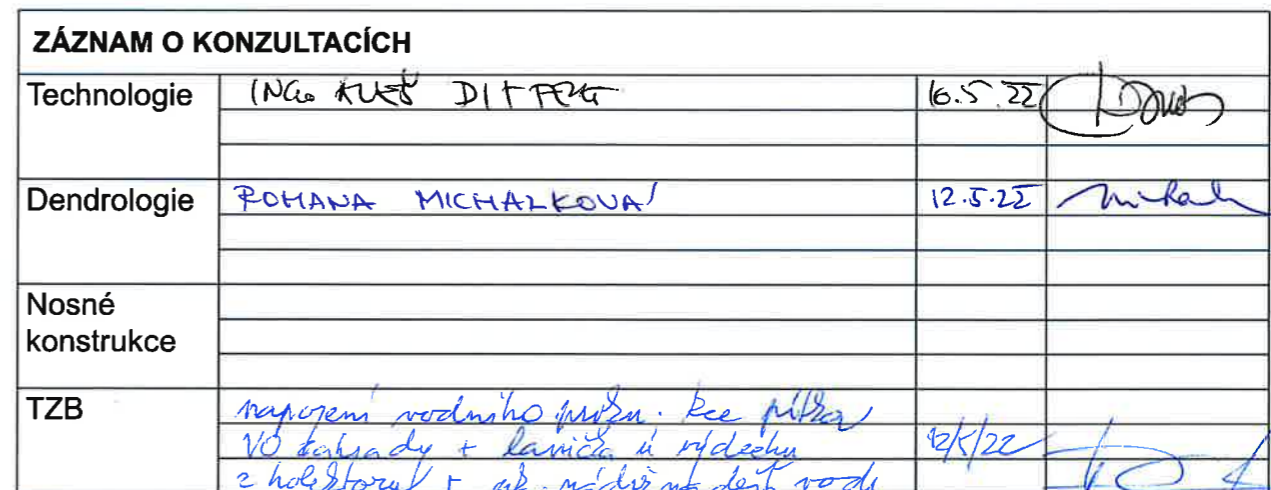 ZÁZNAM O KONZULTACÍCH
Technologie ING. ALEŠ DITTERT 16.5.22
Dendrologie ROMANA MICHALKOVÁ 12.5.22
Nosné
konstrukce
TZB napojení vodního prvku.
VO zahrady + lavička u výdechu 12/5/22
z kolektoru + nádrž na dešť. vodu